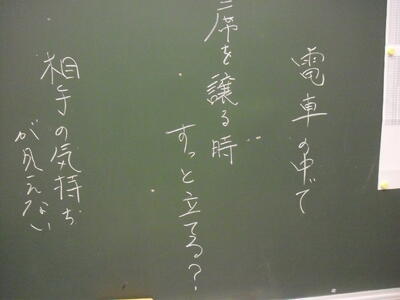 電車の中で
席を譲る時
すっと立てる?
相手の気持ち
が見えない